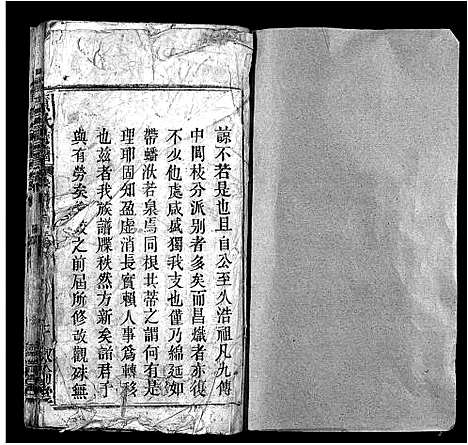 諒不若是也且自公至久浩祖凡九傳
中間枝分派別者多矣而昌熾者亦復
不少他處戚戚獨我支也僅乃綿延如
帶蟠泑若泉焉同根共蒂之謂何有是
理耶固知盈虛消長實賴人事爲轉移
也茲者我族譜牒秩然方新矣諸君于
與有勞矣之前屆所修改觀殊無